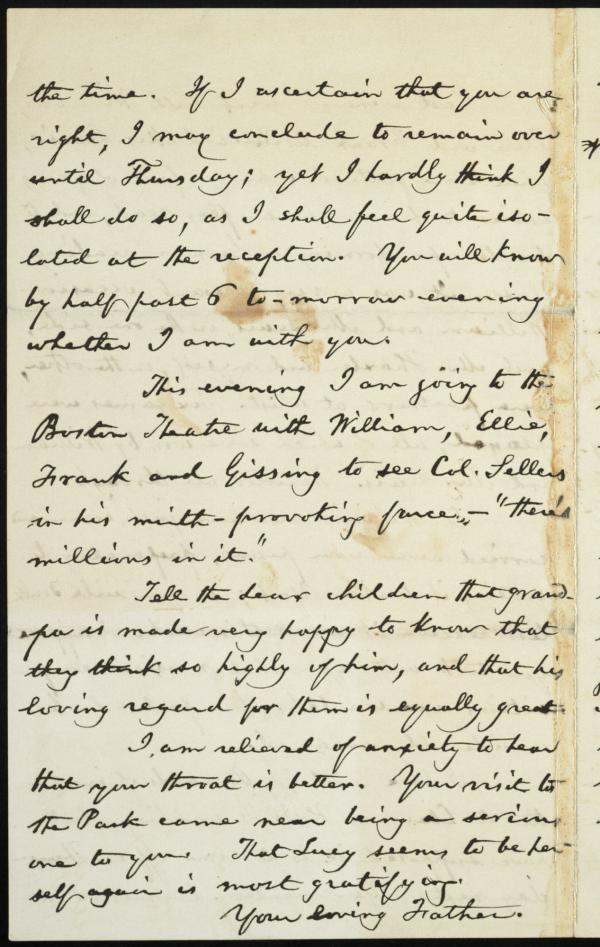 the time. If I ascertain that you are
right, I may conclude to remain over
until Thursday; yet I hardly think I
shall do so, as I shall feel quite iso-
lated at the reception. You will know
by half past 6 to-morrow evening
whether I am with you.
This evening I am going to the
Boston Theatre with William, Ellie,
Frank and Gissing to see Col. Sellers
in his mirth-provoking farce,—"there's
millions in it."
Tell the dear children that grand-
pa is made very happy to know that
they think so highly of him, and that his
loving regard for them is equally great.
I am relieved of anxiety to hear
that your throat is better. Your visit to
the Park came near being a serious
one to you. That Lucy seems to be her-
self again is most gratifying.
Your loving Father.